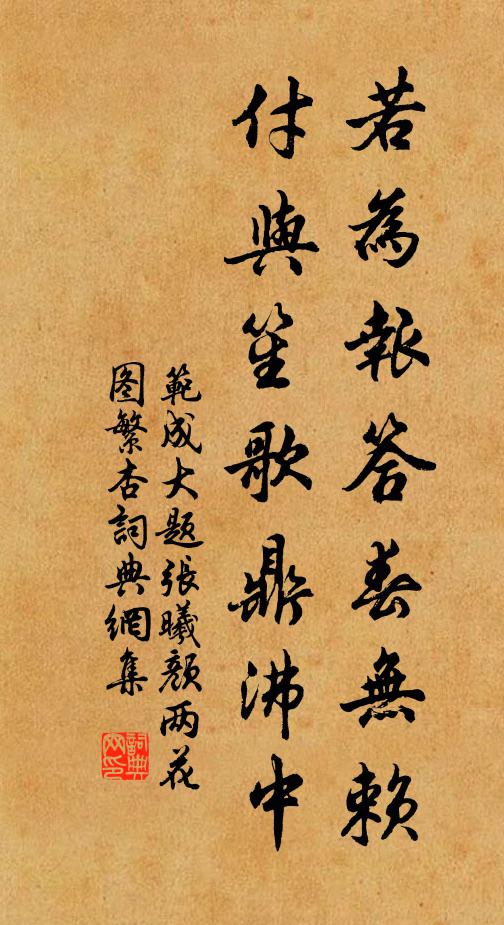 若為報答春無賴
付與笙歌鼎沸中
範成大题張曦颜两花
图繁杏詞典網集
詞典网印